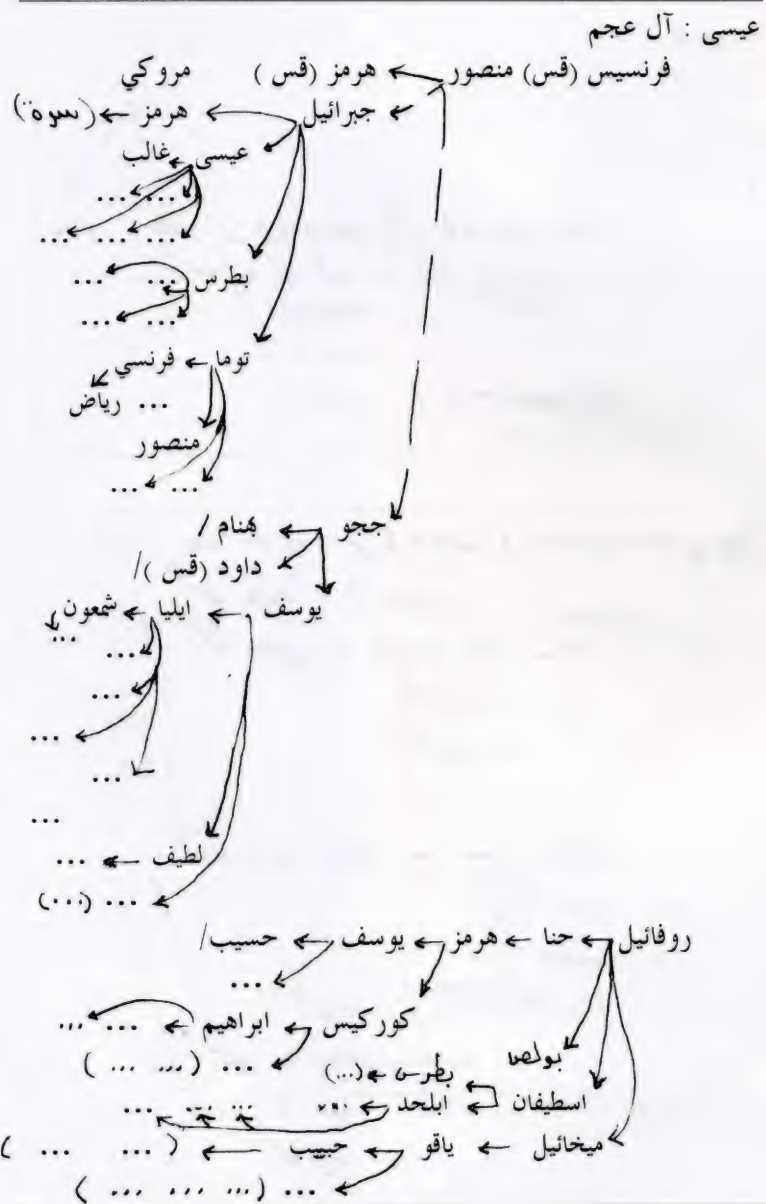 عيسى : آل عجم
فرنسيس (قس) منصور ← هرمز (قس ) مروكي
← جبرائيل ← هرمز ← (سوه)
عيسى ← غالب
... ...
... ... ...
بطرس ... ...
... ...
توما ← فرنسي
... رياض
منصور
... ...
ججو ← بهنام /
داود (قس )/
يوسف ← ايليا ← شمعون
...
...
...
...
...
...
لطيف ← ...
... (...)
روفائيل ← حنا ← هرمز ← يوسف ← حسيب/
...
كوركيس ← ابراهيم ← ... ...
... (... ...)
بولص بطرس ← (...)
اسطيفان ← ابلحد ← ... ... ... ...
ميخائيل ← ياقو ← حبيب ← (... ...)
... (... ... ...)